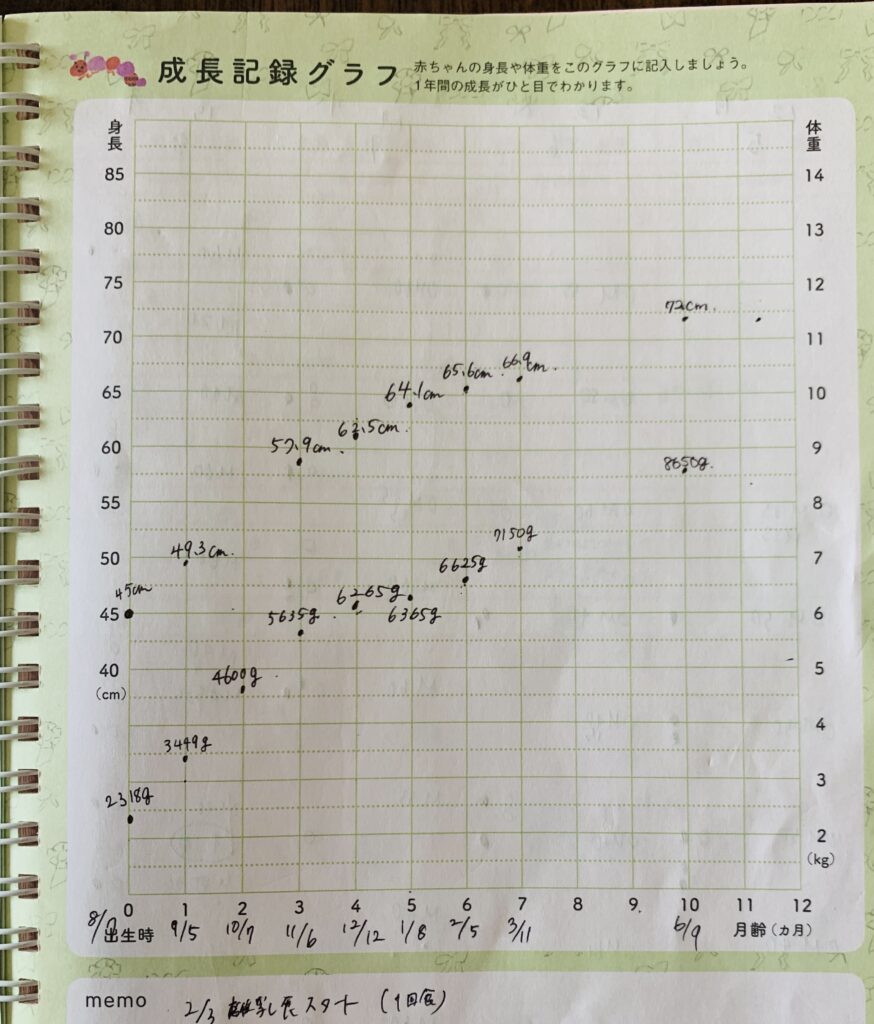 成長記録グラフ
赤ちゃんの身長や体重をこのグラフに記入しましょう。
1年間の成長がひと目でわかります。
身長
体重
85
14
80
13
75
12
72cm.
70
11
65.6cm
66.9cm.
65
64.1cm
10
60
57.9cm
cm.
9
8650g.
55
8
50
49.3cm.
7150g
7
6625g
45cm
45
5635g
6265g
6365g
6
40
(cm)
4600g
5
3449g
4
3
2318g
2
(kg)
0 1 2 3 4 5 6 7 8 9 10 11 12
出生時 9/5 10/7 11/6 12/12 1/8 2/5 3/11 6/9 月齢(カ月)
memo
2/3 スタート (1回食)